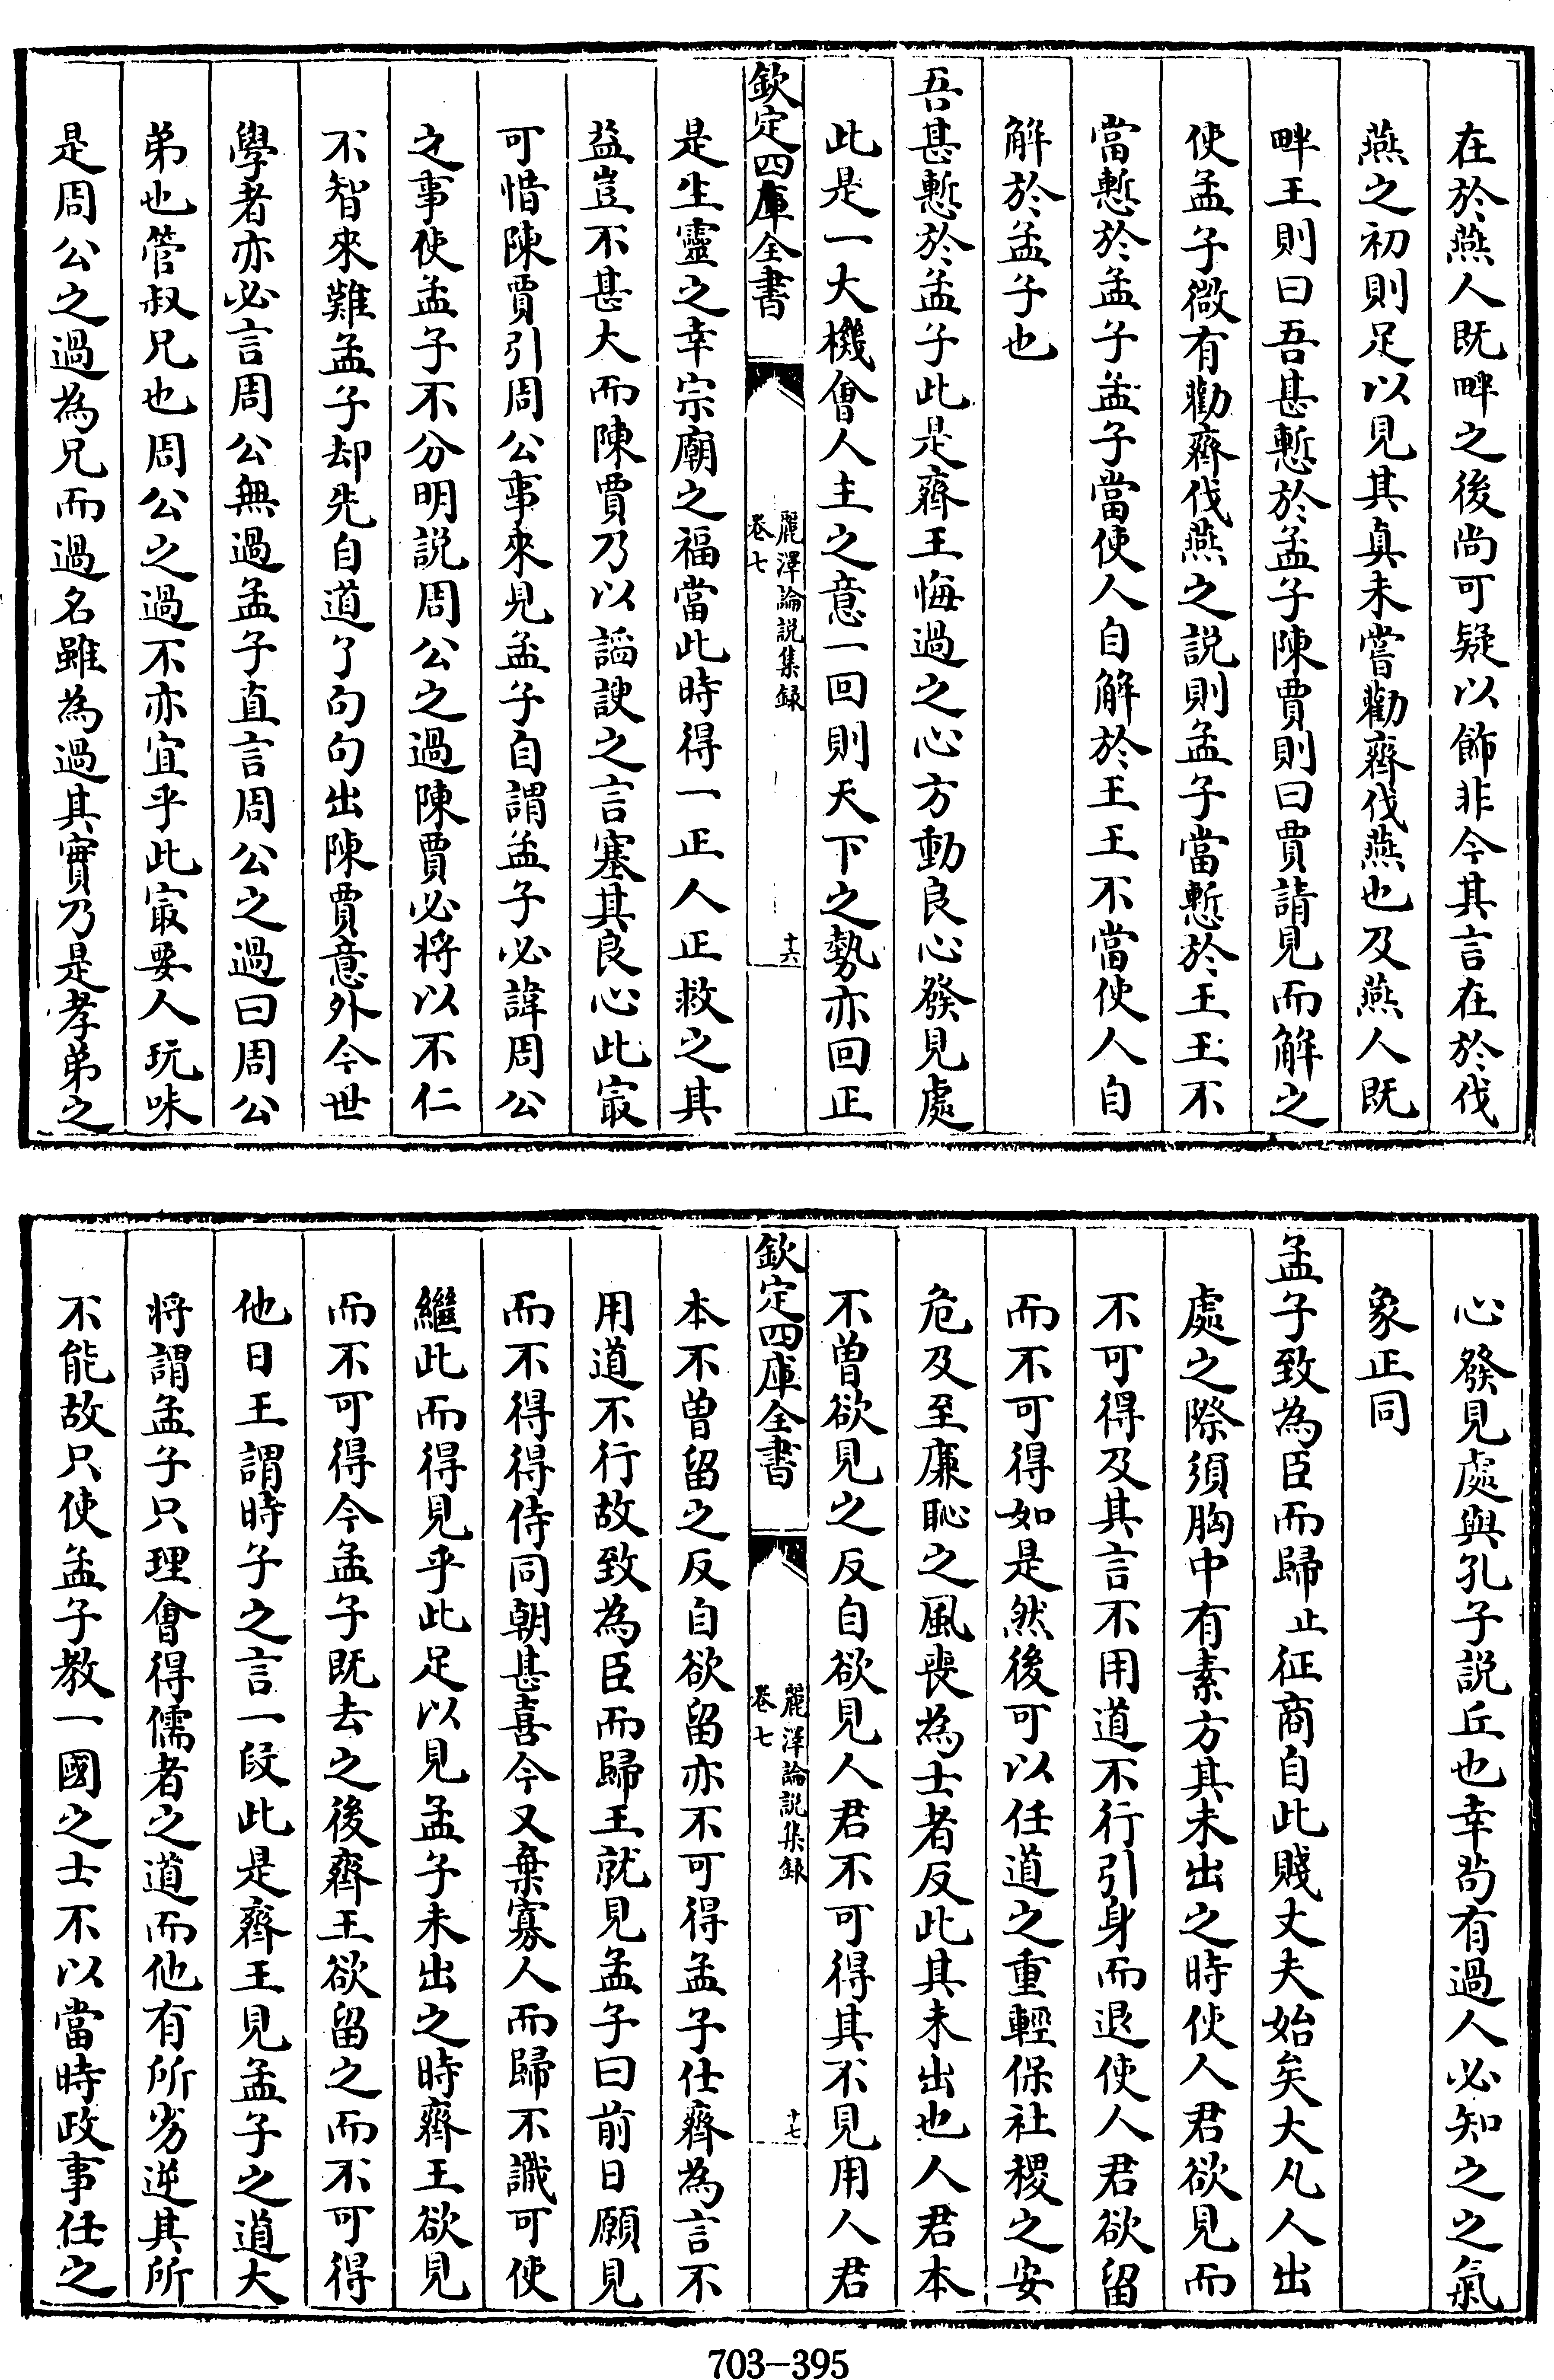 在於燕人既畔之後尚可疑以飾非今其言在於伐
燕之初則足以見其真未嘗勸齊伐燕也及燕人既
畔王則曰吾甚慙於孟子陳賈則曰賈請見而解之
使孟子微有勸齊伐燕之説則孟子當慙於王王不
當慙於孟子孟子當使人自解於王王不當使人自
解於孟子也
吾甚慙於孟子此是齊王悔過之心方動良心發見處
此是一大機會人主之意一回則天下之勢亦回正
欽定四庫全書
麗澤論説集録
卷七
十六
是生靈之幸宗廟之福當此時得一正人正救之其
益豈不甚大而陳賈乃以謟諛之言塞其良心此㝡
可惜陳賈引周公事來見孟子自謂孟子必諱周公
之事使孟子不分明説周公之過陳賈必將以不仁
不智來難孟子却先自道了句句出陳賈意外今世
學者亦必言周公無過孟子直言周公之過曰周公
弟也管叔兄也周公之過不亦宜乎此㝡要人玩味
是周公之過為兄而過名雖為過其實乃是孝弟之
心發見處與孔子説丘也幸茍有過人必知之之氣
象正同
孟子致為臣而歸止征商自此賤丈夫始矣大凡人出
處之際須胸中有素方其未出之時使人君欲見而
不可得及其言不用道不行引身而退使人君欲留
而不可得如是然後可以任道之重輕保社稷之安
危及至廉恥之風喪為士者反此其未出也人君本
不曽欲見之反自欲見人君不可得其不見用人君
欽定四庫全書
麗澤論説集録
卷七
十七
本不曽留之反自欲留亦不可得孟子仕齊為言不
用道不行故致為臣而歸王就見孟子曰前日願見
而不得得侍同朝甚喜今又棄寡人而歸不識可使
繼此而得見乎此足以見孟子未出之時齊王欲見
而不可得今孟子既去之後齊王欲留之而不可得
他日王謂時子之言一段此是齊王見孟子之道大
將謂孟子只理會得儒者之道而他有所劣逆其所
不能故只使孟子教一國之士不以當時政事任之
703-395